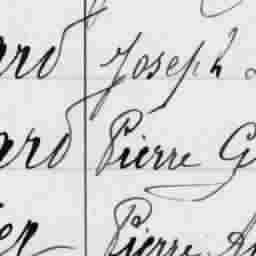 ard Joseph
ard Pierre G
ier Pierre